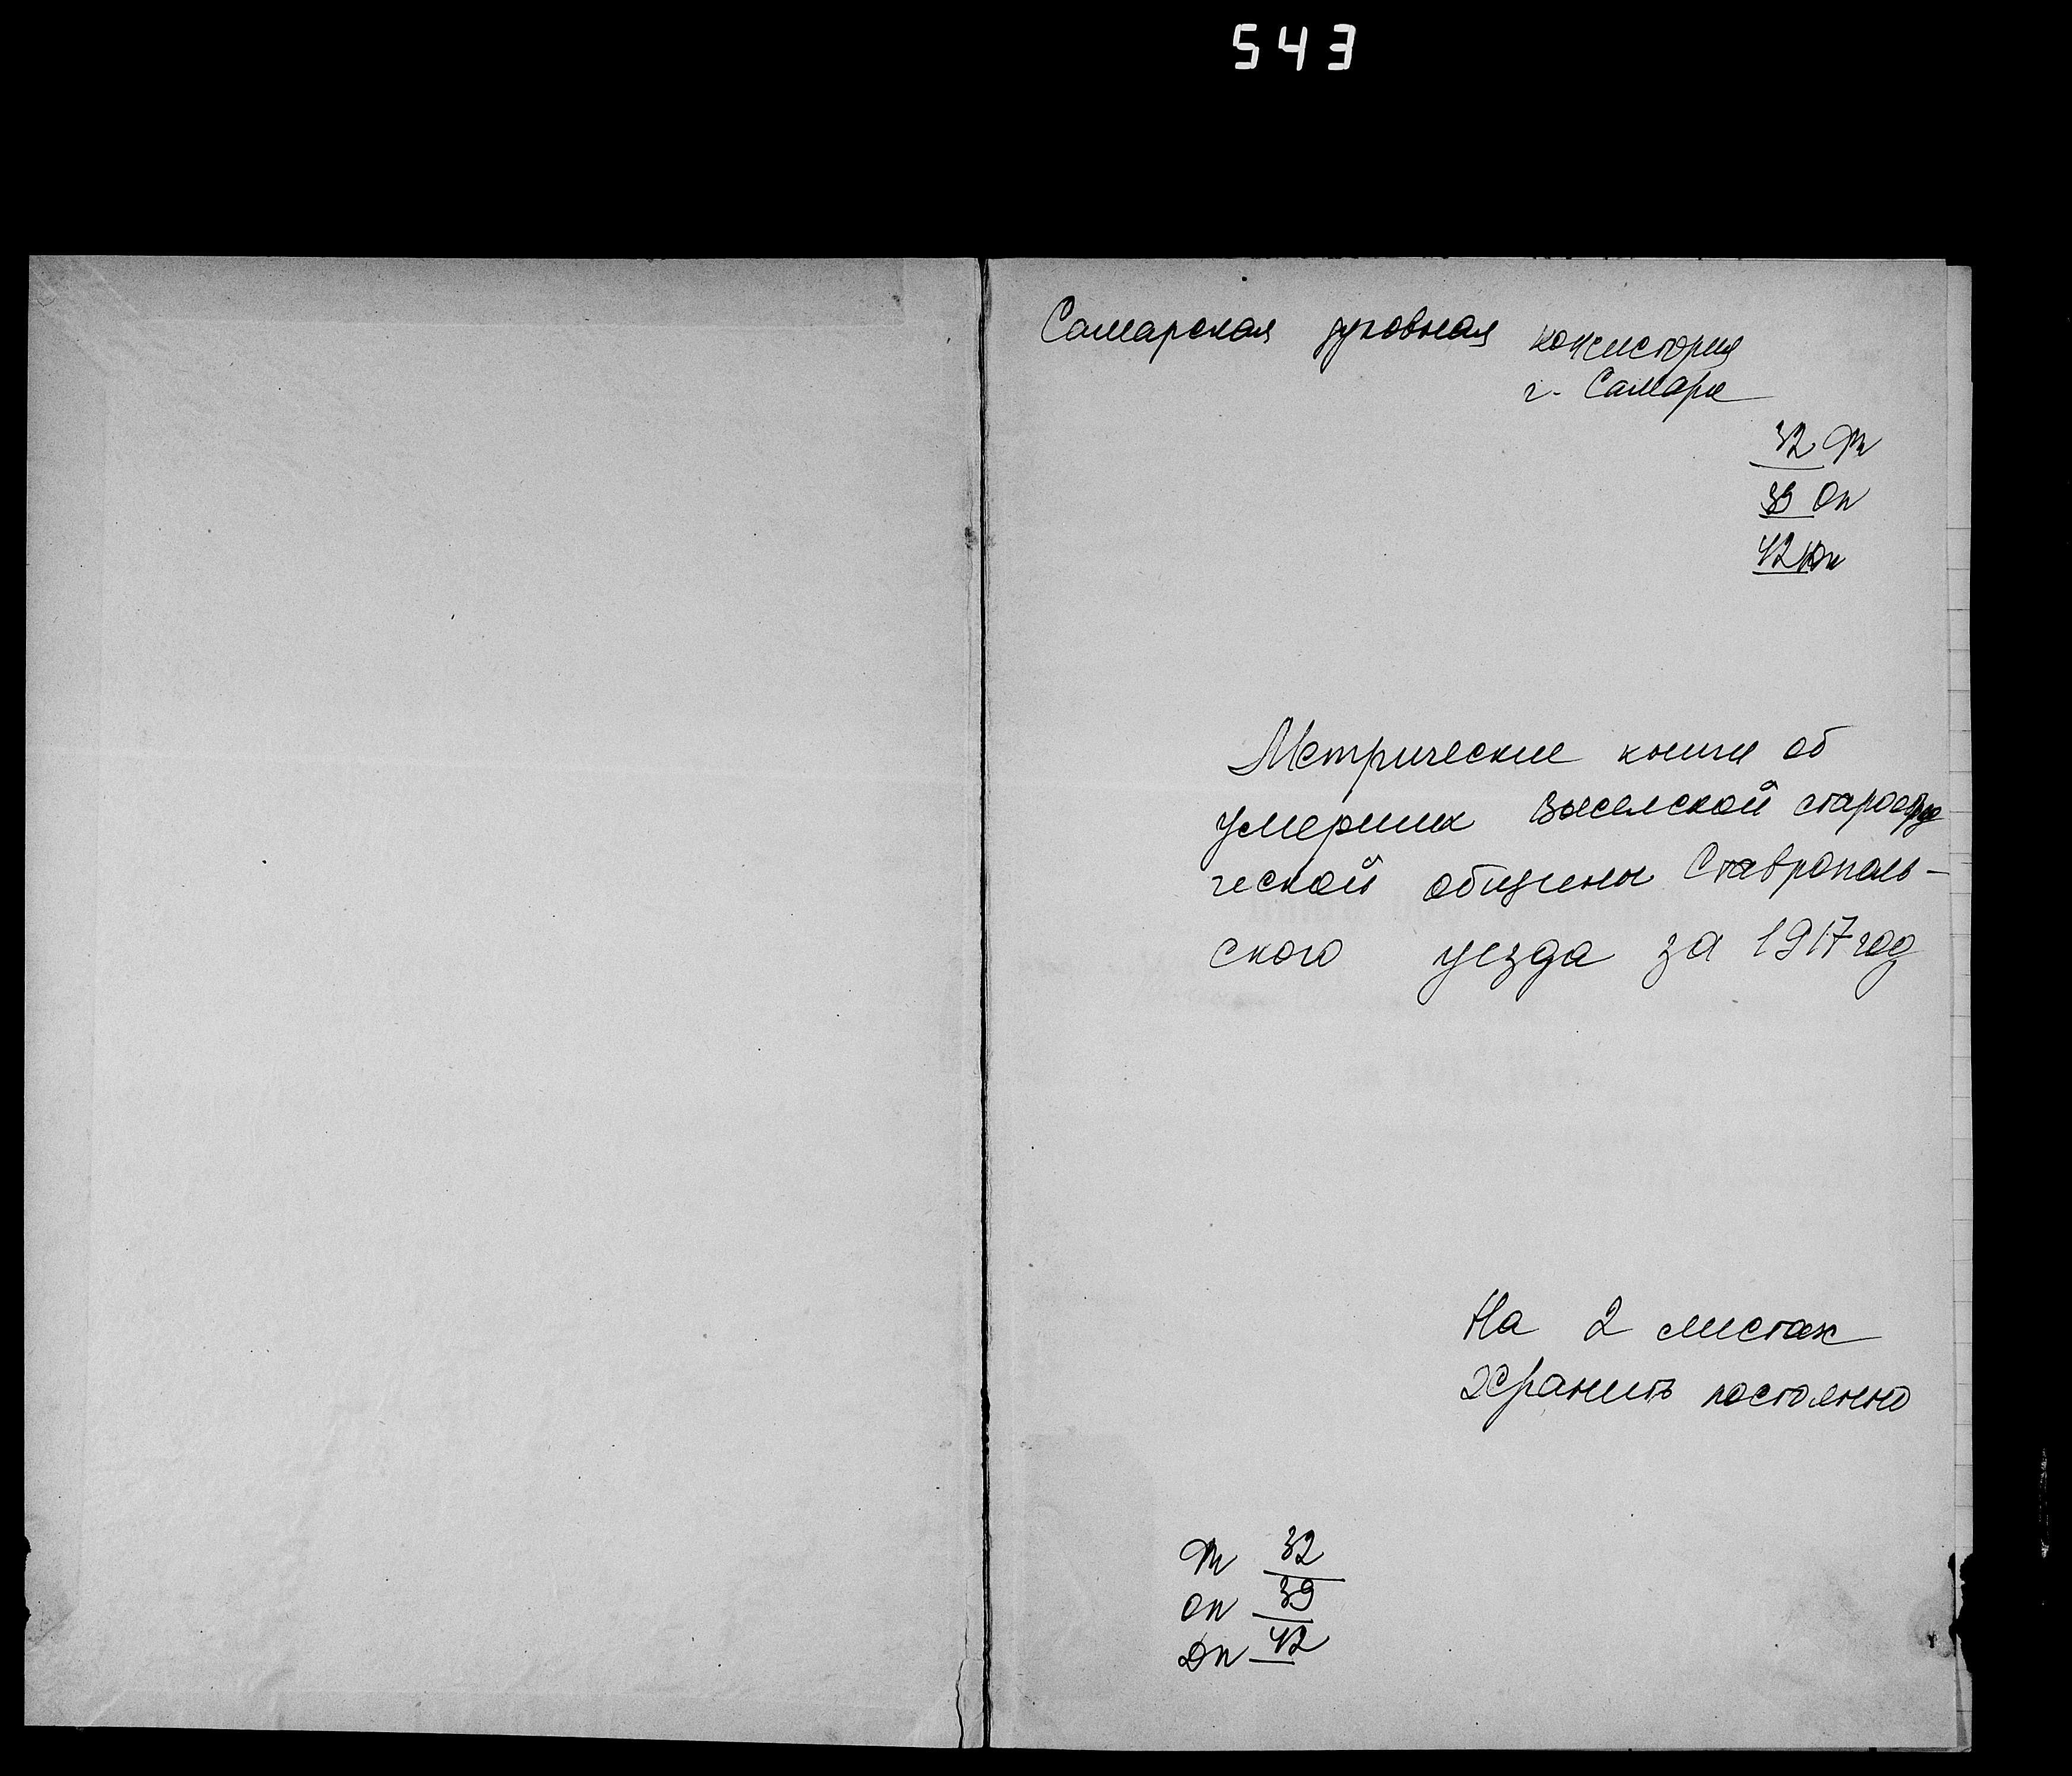 543
Самарская духовная консистория
г. Самара
32 Ф
39 Оп
42
Метрические книги об
умерших старообряд
ческой общины Ставрополь-
ского уезда за 1917 год
На 2 листах
Хранить постоянно
Ф 32
оп 39
Дп 42